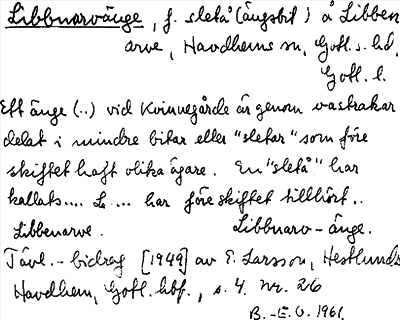 Libbnarvänge, f. sletå (ängsbit) å Libben
arve, Havdhems sn, Gotl. s. hd,
Gotl. l.
Ett änge (..) vid Kvinnegårde är genom vastrakar
delat i mindre bitar eller "sletar" som före
skiftet haft olika ägare. En "sletå" har
kallats.... L. ... har före skiftet tillhört..
Libbenarve. Libbnarv-änge.
Tävl.-bidrag [1949] av E. Larsson, Hestlunds
Havdhem, Gotl. hbf., s. 4. Nr. 26
B.-E. O. 1961.